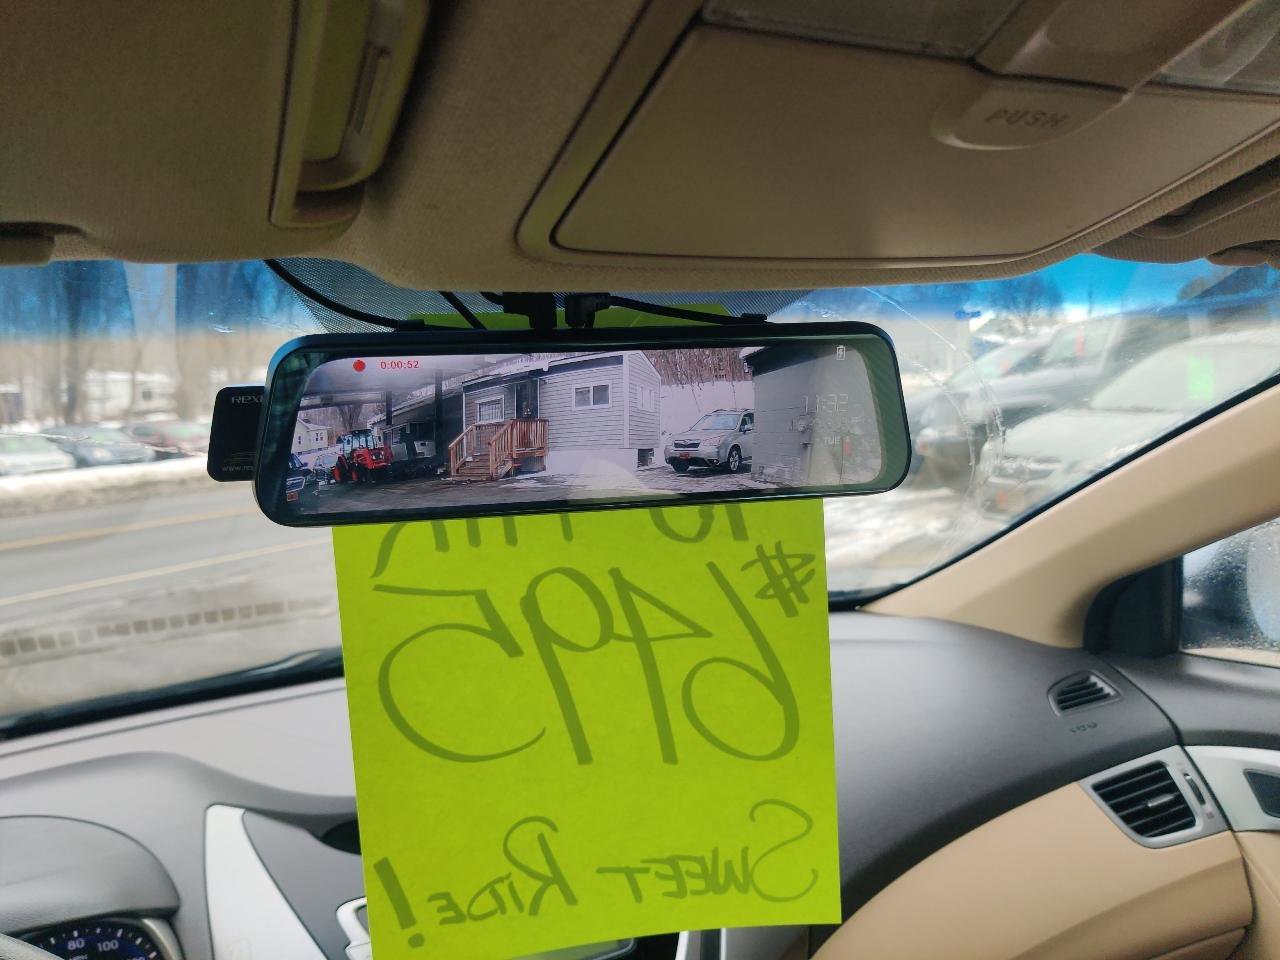 PUSH
0:00:52
:32
TUE
$6495
SWEET RIDE!
80 100